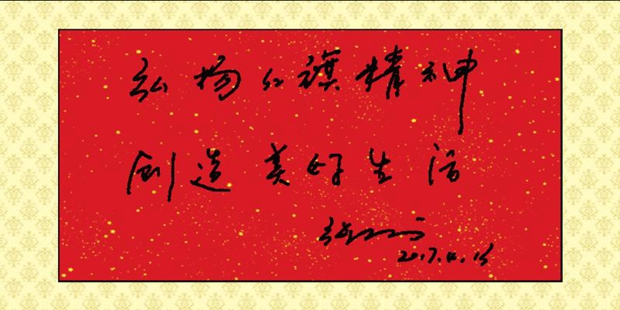 弘扬红旗精神
创造美好生活
2017.4.15